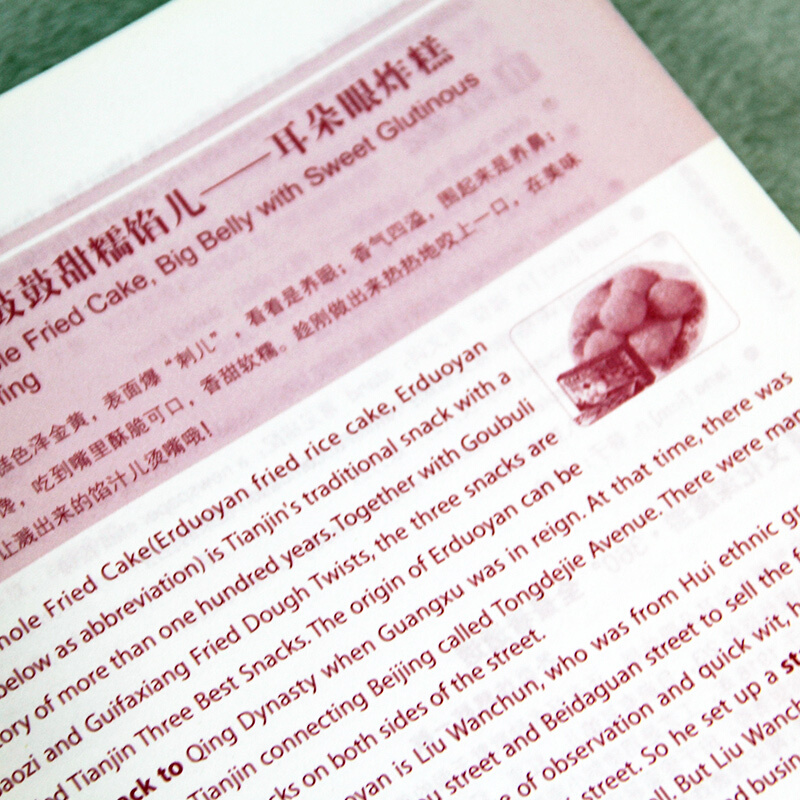 鼓鼓甜糯馅儿——耳朵眼炸糕
Fried Cake, Big Belly with Sweet Glutinous
色泽金黄，表面爆“刺儿”，看着是养眼；香气四溢，围起来是养鼻；
馋，吃到嘴里酥脆可口，香甜软糯。趁刚做出来热热地咬上一口，在美味
让溅出来的馅汁儿烫嘴哦！
hole Fried Cake(Erduoyan fried rice cake, Erduoyan
below as abbreviation) is Tianjin's traditional snack with a
tory of more than one hundred years. Together with Goubuli
aozi and Guifaxiang Fried Dough Twists, the three snacks are
ed Tianjin Three Best Snacks. The origin of Erduoyan can be
ck to Qing Dynasty when Guangxu was in reign. At that time, there was
Tianjin connecting Beijing called Tongdejie Avenue. There were man
cks on both sides of the street.
oyan is Liu Wanchun, who was from Hui ethnic gr
u street and Beidaguan street to sell the f
e of observation and quick wit, h
street. So he set up a st
ll. But Liu Wanch
d busin